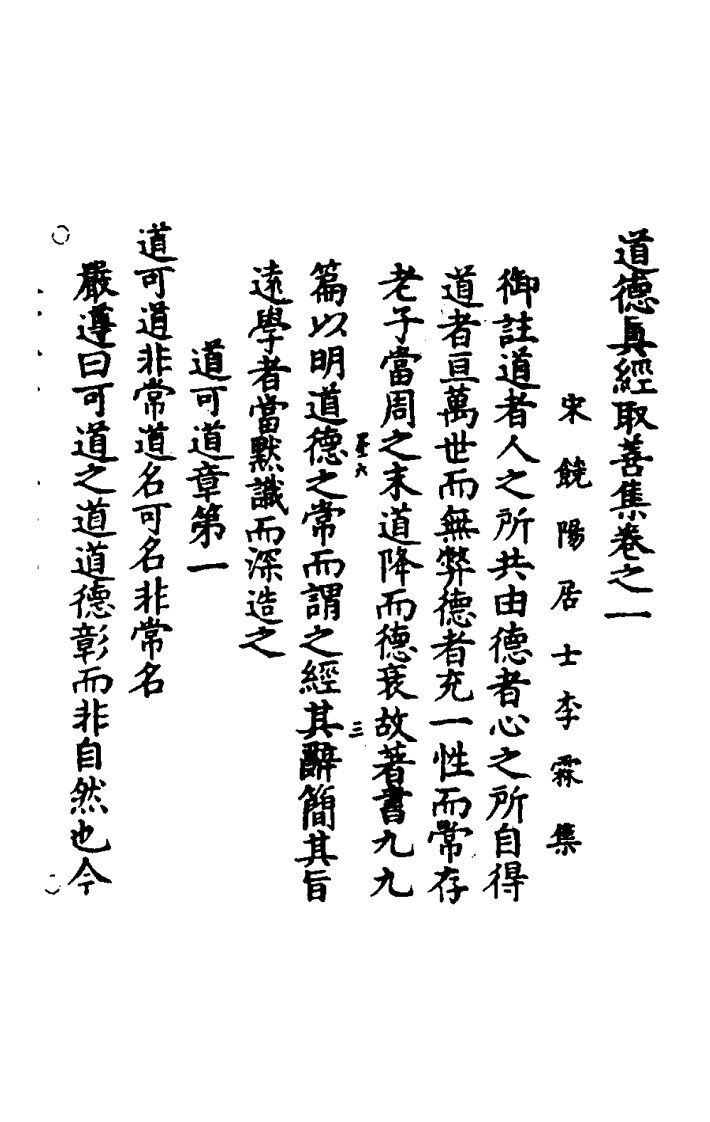 道德真經取善集卷之一
宋饒陽居士李霖集
御註道者人之所共由德者心之所自得
道者亘萬世而無弊德者充一性而常存
老子當周之末道降而德衰故著書九九
三
篇以明道德之常而謂之經其辭簡其旨
遠學者當默識而深造之
道可道章第一
道可道非常道名可名非常名
嚴遵曰可道之道道德彰而非自然也今